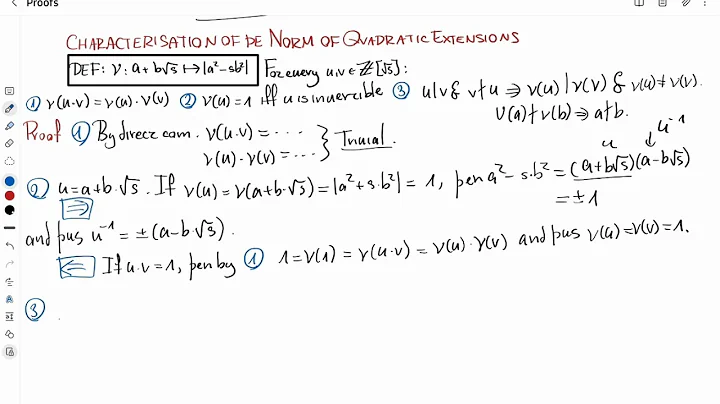 Proofs
CHARACTERISATION OF ÞE NORM OF QUADRATIC EXTENSIONS
DEF: ν: a+b√s ↦ |a²-sb²| For every u,v ∈ ℤ[√s]:
① ν(u·v)=ν(u)·ν(v) ② ν(u)=1 iff u is invertible ③ u|v & v∤u ⇒ ν(u)|ν(v) & ν(u)≠ν(v).
ν(a)∤ν(b) ⇒ a∤b.
Proof ① By direct com. ν(u·v)=···
ν(u)·ν(v)=··· } Trivial.
② u=a+b·√s. If ν(u)=ν(a+b·√s)=|a²+s·b²|=1, þen a²-s·b²=(a+b√s)(a-b√s)
u u⁻¹
=±1
and þus u⁻¹=±(a-b·√s).
⇒
⇐ If u·v=1, þen by ① 1=ν(1)=ν(u·v)=ν(u)·ν(v) and þus ν(u)=ν(v)=1.
③